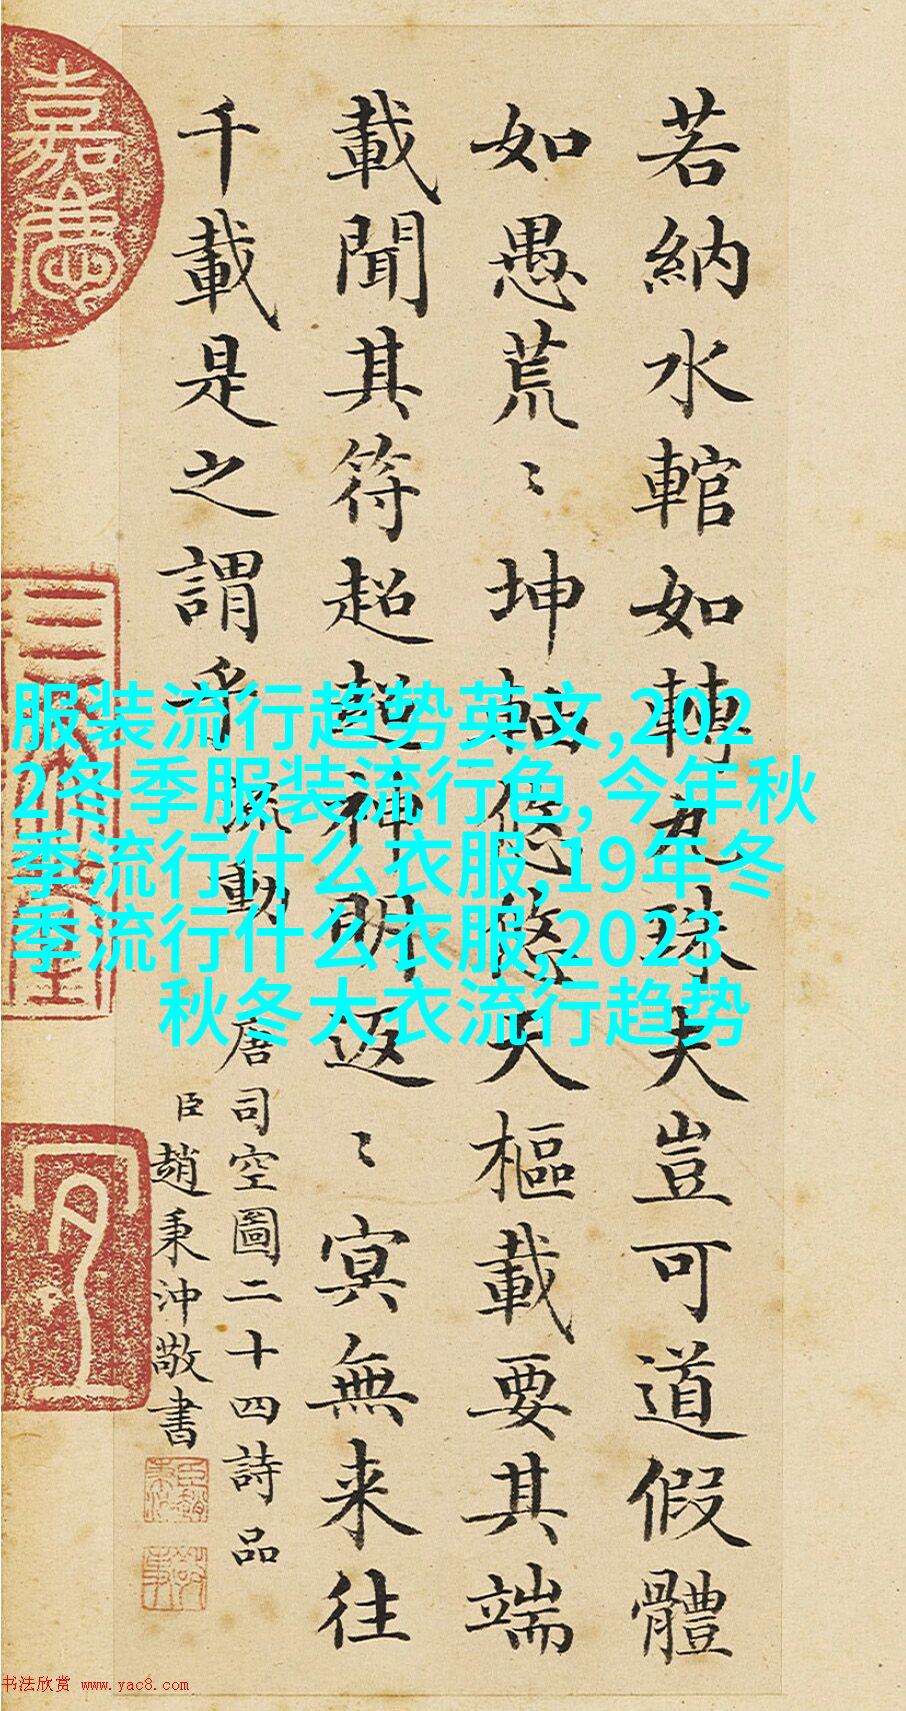 若納水輨如轉丸珠夫豈可道假體
如愚荒〻坤軸悠悠天樞載要其端
載聞其符超超神明返〻冥無来往
千載是之謂乎 流動
唐司空圖二十四詩品
臣趙秉沖敬書
嘉慶
服装流行趋势英文,202
2冬季服装流行色,今年秋
季流行什么衣服,19年冬
季流行什么衣服,2023
秋冬大衣流行趋势
书法欣赏 www.yac8.com